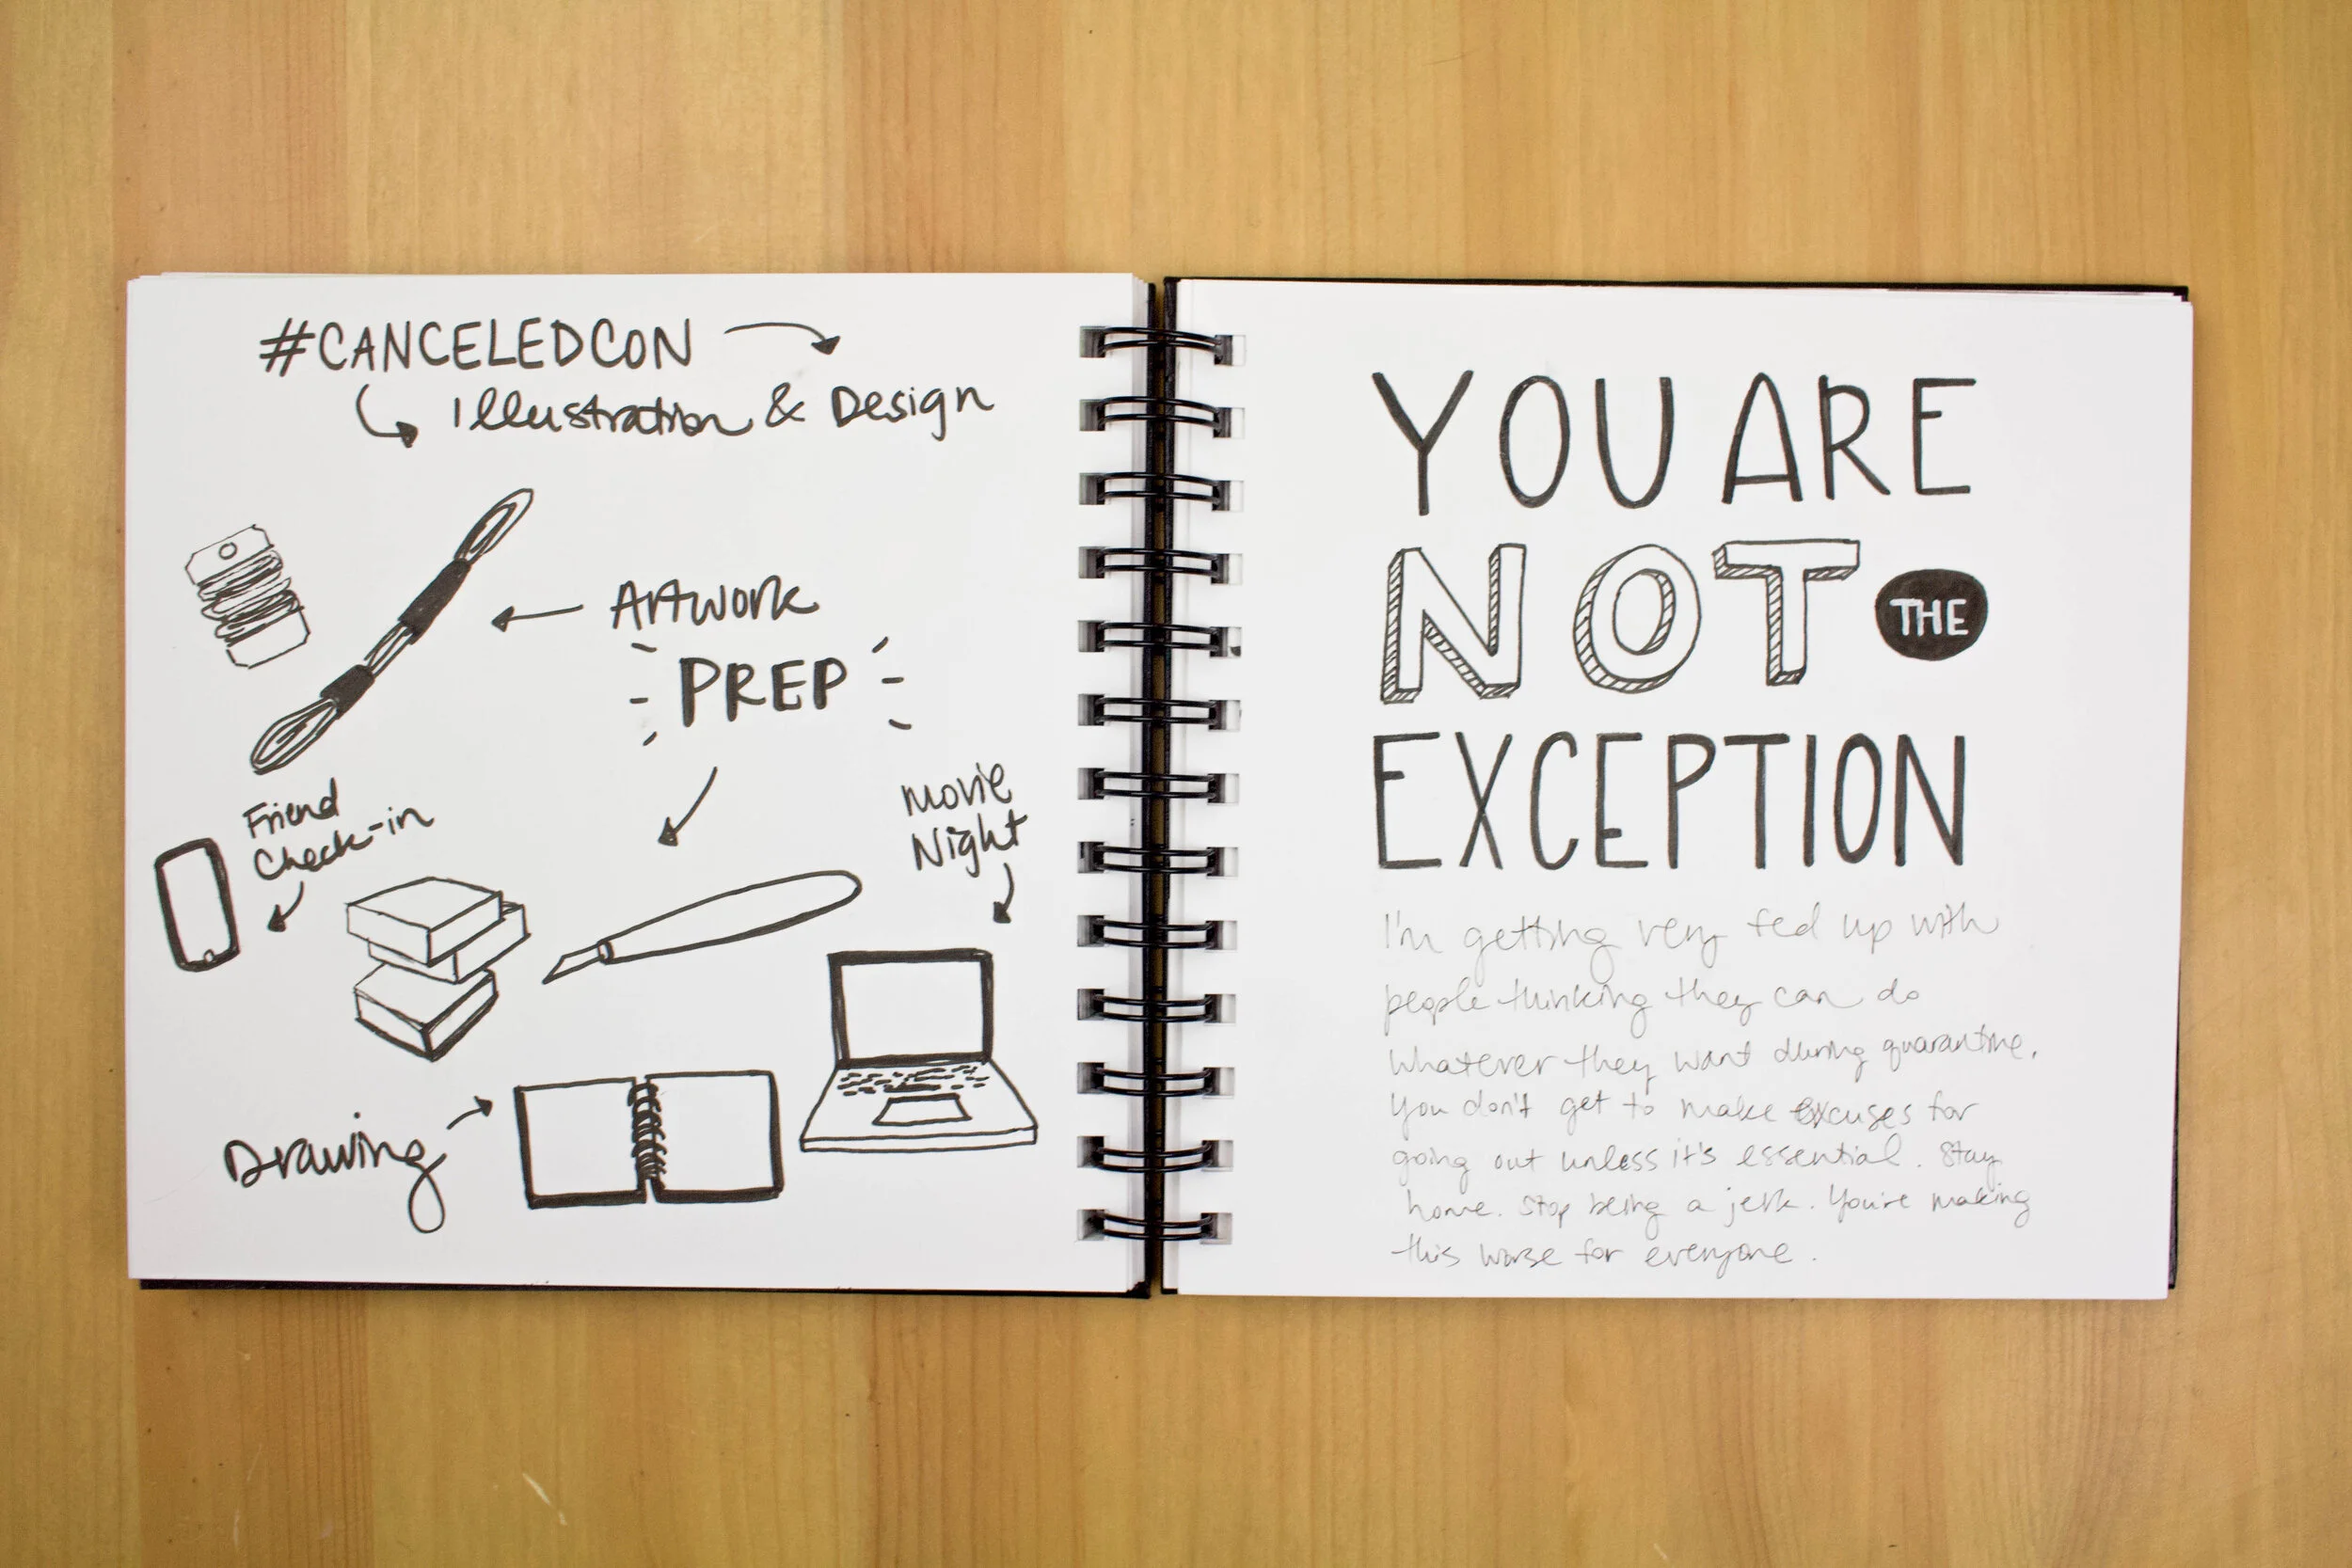 #CANCELEDCON
Illustration & Design
Artwork
PREP
Friend
Check-in
Movie
Night
Drawing
YOU ARE
NOT THE
EXCEPTION
I'm getting very fed up with
people thinking they can do
whatever they want during quarantine.
You don't get to make excuses for
going out unless it's essential. Stay
home. Stop being a jerk. You're making
this worse for everyone.